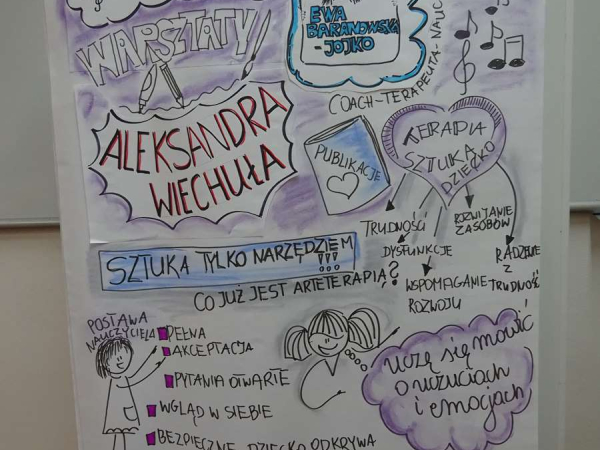 WARSZTATY
EWA
BARANOWSKA
-JOJKO
COACH-TERAPEUTA-NAUC
ALEKSANDRA
WIECHUŁA
PUBLIKACJE
TERAPIA
SZTUKĄ
DZIECKO
TRUDNOŚCI
DYSFUNKCJE
WSPOMAGANIE
ROZWOJU
ROZWIJANIE
ZASOBÓW
RADZENIE
Z
TRUDNOŚ
SZTUKA TYLKO NARZĘDZIEM !!!
CO JUŻ JEST ARTETERAPIĄ?
POSTAWA
NAUCZYCIELA
PEŁNA
AKCEPTACJA
PYTANIA OTWARTE
WGLĄD W SIEBIE
BEZPIECZNE DZIECKO ODKRYWA
uczę się mówić
o uczuciach
i emocjach